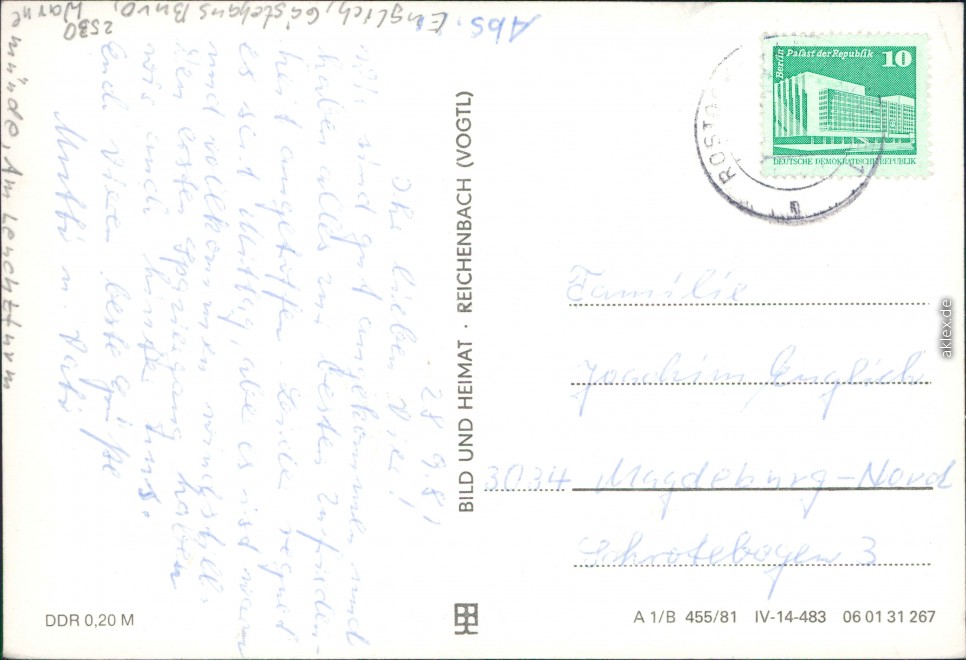 Abs. Englich, Gästehaus Büro,
2530 Warne
münde, Am Leuchtturm
28.9.81
Ihr lieben Vier!
Wir sind gut angekommen und
haben alles zum besten zufrieden-
heit angetroffen. Leider regnet
es seit Mittag, aber es ist warm
und vollkommen windstill.
Den ersten Spaziergang haben
wir auch hinter uns.
Euch vieren beste Grüße
Mutti u. Vati
BILD UND HEIMAT · REICHENBACH (VOGTL)
Berlin Palast der Republik 10
DEUTSCHE DEMOKRATISCHE REPUBLIK
ROSTOCK
Familie
Joachim Englich
3034 Magdeburg-Nord
Schrotebogen 3
DDR 0,20 M
A 1/B 455/81 IV-14-483 06 01 31 267
aklex.de